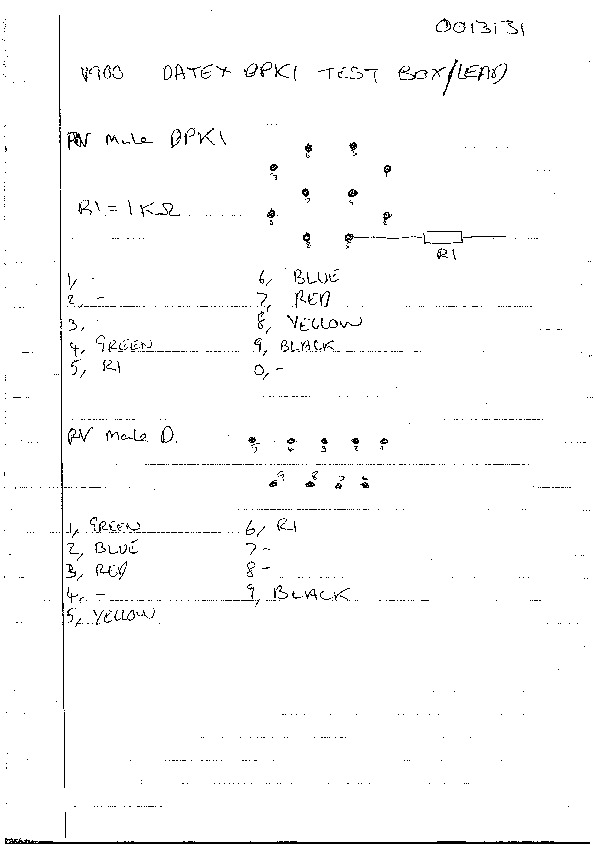 0013131
V900 DATEX OPK1 TEST BOX/(LEAD)
RV Male OPK1
R1 = 1KΩ
R1
1, -
2, -
3, -
4, GREEN
5, R1
6, BLUE
7, RED
8, YELLOW
9, BLACK
0, -
RV Male D.
5 4 3 2 1
9 8 7 6
1, GREEN
2, BLUE
3, RED
4, -
5, YELLOW
6, R1
7 -
8 -
9, BLACK